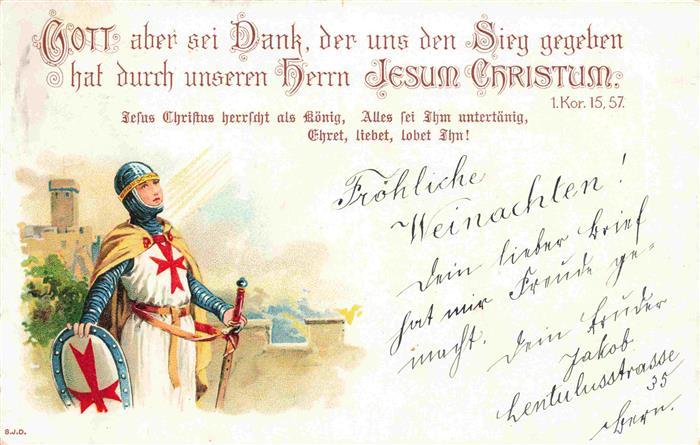 GOTT aber sei Dank, der uns den Sieg gegeben
hat durch unseren Herrn JESUM CHRISTUM.
1. Kor. 15, 57.
Jesus Christus herrscht als König, Alles sei Ihm untertänig,
Ehret, liebet, lobet Ihn!
Fröhliche
Weinachten!
Dein lieber Brief
hat mir Freude ge-
macht. Dein Bruder
Jakob.
Lentulusstrasse
35
Bern.
S.J.D.